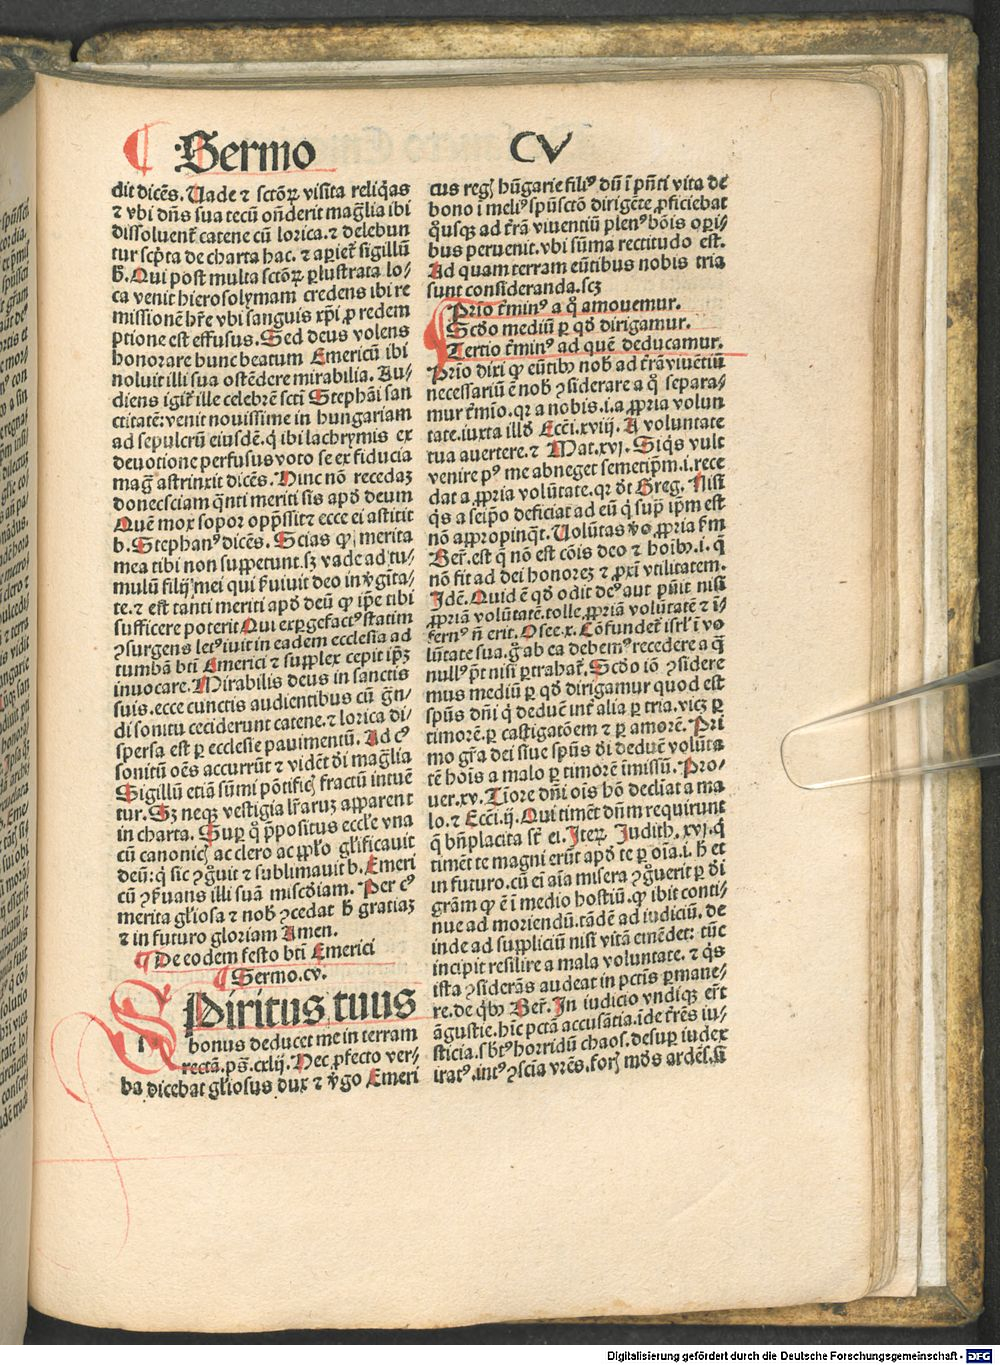 Sermo CV
dit dicēs. Uade ⁊ sctōꝝ visita reliq̄as
⁊ vbi dn̄s sua tecū on̄derit maḡlia ibi
dissoluent᷑ catene cū lorica. ⁊ delebun
tur scp̄ta de charta hac. ⁊ apiet᷑ sigillū
h̄. Qui post multa sctōꝝ ꝑlustrata lo⸗
ca venit hierosolymam credens ibi re
missionē hr̄e vbi sanguis xp̄i ꝓ redem
ptione est effusus. Sed deus volens
honorare hunc beatum Emericū ibi
noluit illi sua ostēdere mirabilia. Au⸗
diens igit᷑ ille celebrē scti Stephāi san
ctitatē: venit nouissime in hungariam
ad sepulcrū eiusdē. q̄ ibi lachrymis ex
deuotione perfusus voto se ex fiducia
maḡ astrinxit dicēs. Hinc nō recedaꝫ
donec sciam q̄nti meriti sis apd̄ deum
Quē mox sopor opp̄ssit ⁊ ecce ei astitit
b. Stephanꝰ dicēs. Scias ꝙ merita
mea tibi non suppetunt. sꝫ vade ad tu⸗
mulū filij mei qui ẜuiuit deo in v̄gīta⸗
te. ⁊ est tanti meriti apd̄ deū ꝙ ip̄e tibi
sufficere poterit Qui exꝑgefactꝰ statim
ꝯsurgens letꝰ iuit in eadem ecclesia ad
tumbā bt̄i Emerici ⁊ supplex cepit ip̄ꝫ
inuocare. Mirabilis deus in sanctis
suis. ecce cunctis audientibus cū ḡn⸗
di sonitu ceciderunt catene. ⁊ lorica di⸗
spersa est ꝑ ecclesie pauimentū. Ad cꝰ
sonitū oēs accurrūt ⁊ vidēt d̄i maḡlia
Sigillū etiā sūmi pōtificꝭ fractū intuē
tur. Sꝫ neqꝫ vestigia lr̄aruꝫ apparent
in charta. Suꝑ q̄ p̄positus eccl̄e vna
cū canonicꝭ ac clero ac pp̄lo gl̄ificauit
deū: q̄ sic ꝯḡuit ⁊ sublimauit b. Emeri
cū ꝯẜuans illi suā misc̄diam. Per cꝰ
merita gl̄iosa ⁊ nob̄ ꝯcedat h̄ gratiaꝫ
⁊ in futuro gloriam Amen.
De eodem festo bt̄i Emerici
Sermo. cv.
SPiritus tuus
bonus deducet me in terram
rectā. ps̄. cxlij. Nec ꝓfecto ver⸗
ba dicebat gl̄iosus dux ⁊ v̄go Emeri
cus regꝭ hūgarie filiꝰ dū ī pn̄ti vita de
bono i meliꝰ spūsctō dirigēte ꝓficiebat
q̄usqꝫ ad tr̄ā viuentiū plenꝰ bōis oꝑi⸗
bus peruenit. vbi sūma rectitudo est.
Ad quam terram eūtibus nobis tria
sunt consideranda. scꝫ
Prio t̄minꝰ a q̄ amouemur.
Scd̄o mediū ꝑ qd̄ dirigamur.
Tertio t̄minꝰ ad quē deducamur.
Prīo diri ꝙ eūtibꝫ nob̄ ad tr̄ā viuētiū
necessariū ē nob̄ ꝯsiderare a q̄ separa⸗
mur t̄mīo. qꝛ a nobis. i. a ꝓpria volun
tate. iuxta illd̄ Eccī. xviij. A voluntate
tua auertere. ⁊ Mat. xvj. Siq̄s vult
venire pꝰ me abneget semetip̄m. i. rece
dat a ꝓpria volūtate. qꝛ dt̄ Greg. Nisi
q̄s a seip̄o deficiat ad eū q̄ suꝑ ip̄m est
nō appropinq̄t. Uolūtas v̄o ꝓpria ẜm
Ber̄. est q̄ nō est cōis deo ⁊ hoībꝫ. i. q̄
nō fit ad dei honoreꝫ ⁊ ꝓxi vtilitatem.
Idē. Quid ē qd̄ odit deꝰ aut pūit nisi
ꝓpriā volūtatē. tolle ꝓpriā volūtatē ⁊ ī⸗
fernꝰ n̄ erit. Osee. x. Cōfundet᷑ isrl̄ ī vo
lūtate sua. g̊ ab ea debemꝰ recedere a q̄
nullꝰ p̄t nisi ꝑ trahat᷑. Scd̄o iō ꝯsidere
mus mediū ꝑ qd̄ dirigamur quod est
spūs dn̄i q̄ deducit inf̄ alia ꝑ tria. vicꝫ ꝑ
timorē. ꝑ castigatōem ⁊ ꝑ amorē. Pri
mo gr̄a dei siue spūs d̄i deduc̄ volūta
tē hōis a malo ꝑ timorē īmissū. Pro⸗
uer. xv. Tīore dn̄i ois hō decliat a ma
lo. ⁊ Eccī. ij. Qui timēt dn̄m requirunt
q̄ bn̄placita st̄ ei. Iteꝝ Judith. xvj. q̄
timēt te magni erūt apd̄ te ꝑ oīa. i. h̄ et
in futuro. cū ei aīa misera ꝯḡuerit ꝑ d̄i
grām ꝙ ē i medio hostiū. ꝙ ibit conti⸗
nue ad moriendū. tādē ad iudiciū. de
inde ad suppliciū nisi vitā emēdet: tūc
incipit resilire a mala voluntate. ⁊ q̄s
ista ꝯsiderās audeat in pctīs ꝑmane⸗
re. de q̄bꝫ Ber̄. In iudicio vndiqꝫ er̄t
āgustie. hīc pctā accusātia. īde tr̄ēs iu⸗
sticia. sbt̄ꝰ horridū chaos. desuꝑ iudex
iratꝰ. intꝰ ꝯscīa vrēs. forꝭ mūdꝰ ardēs. si